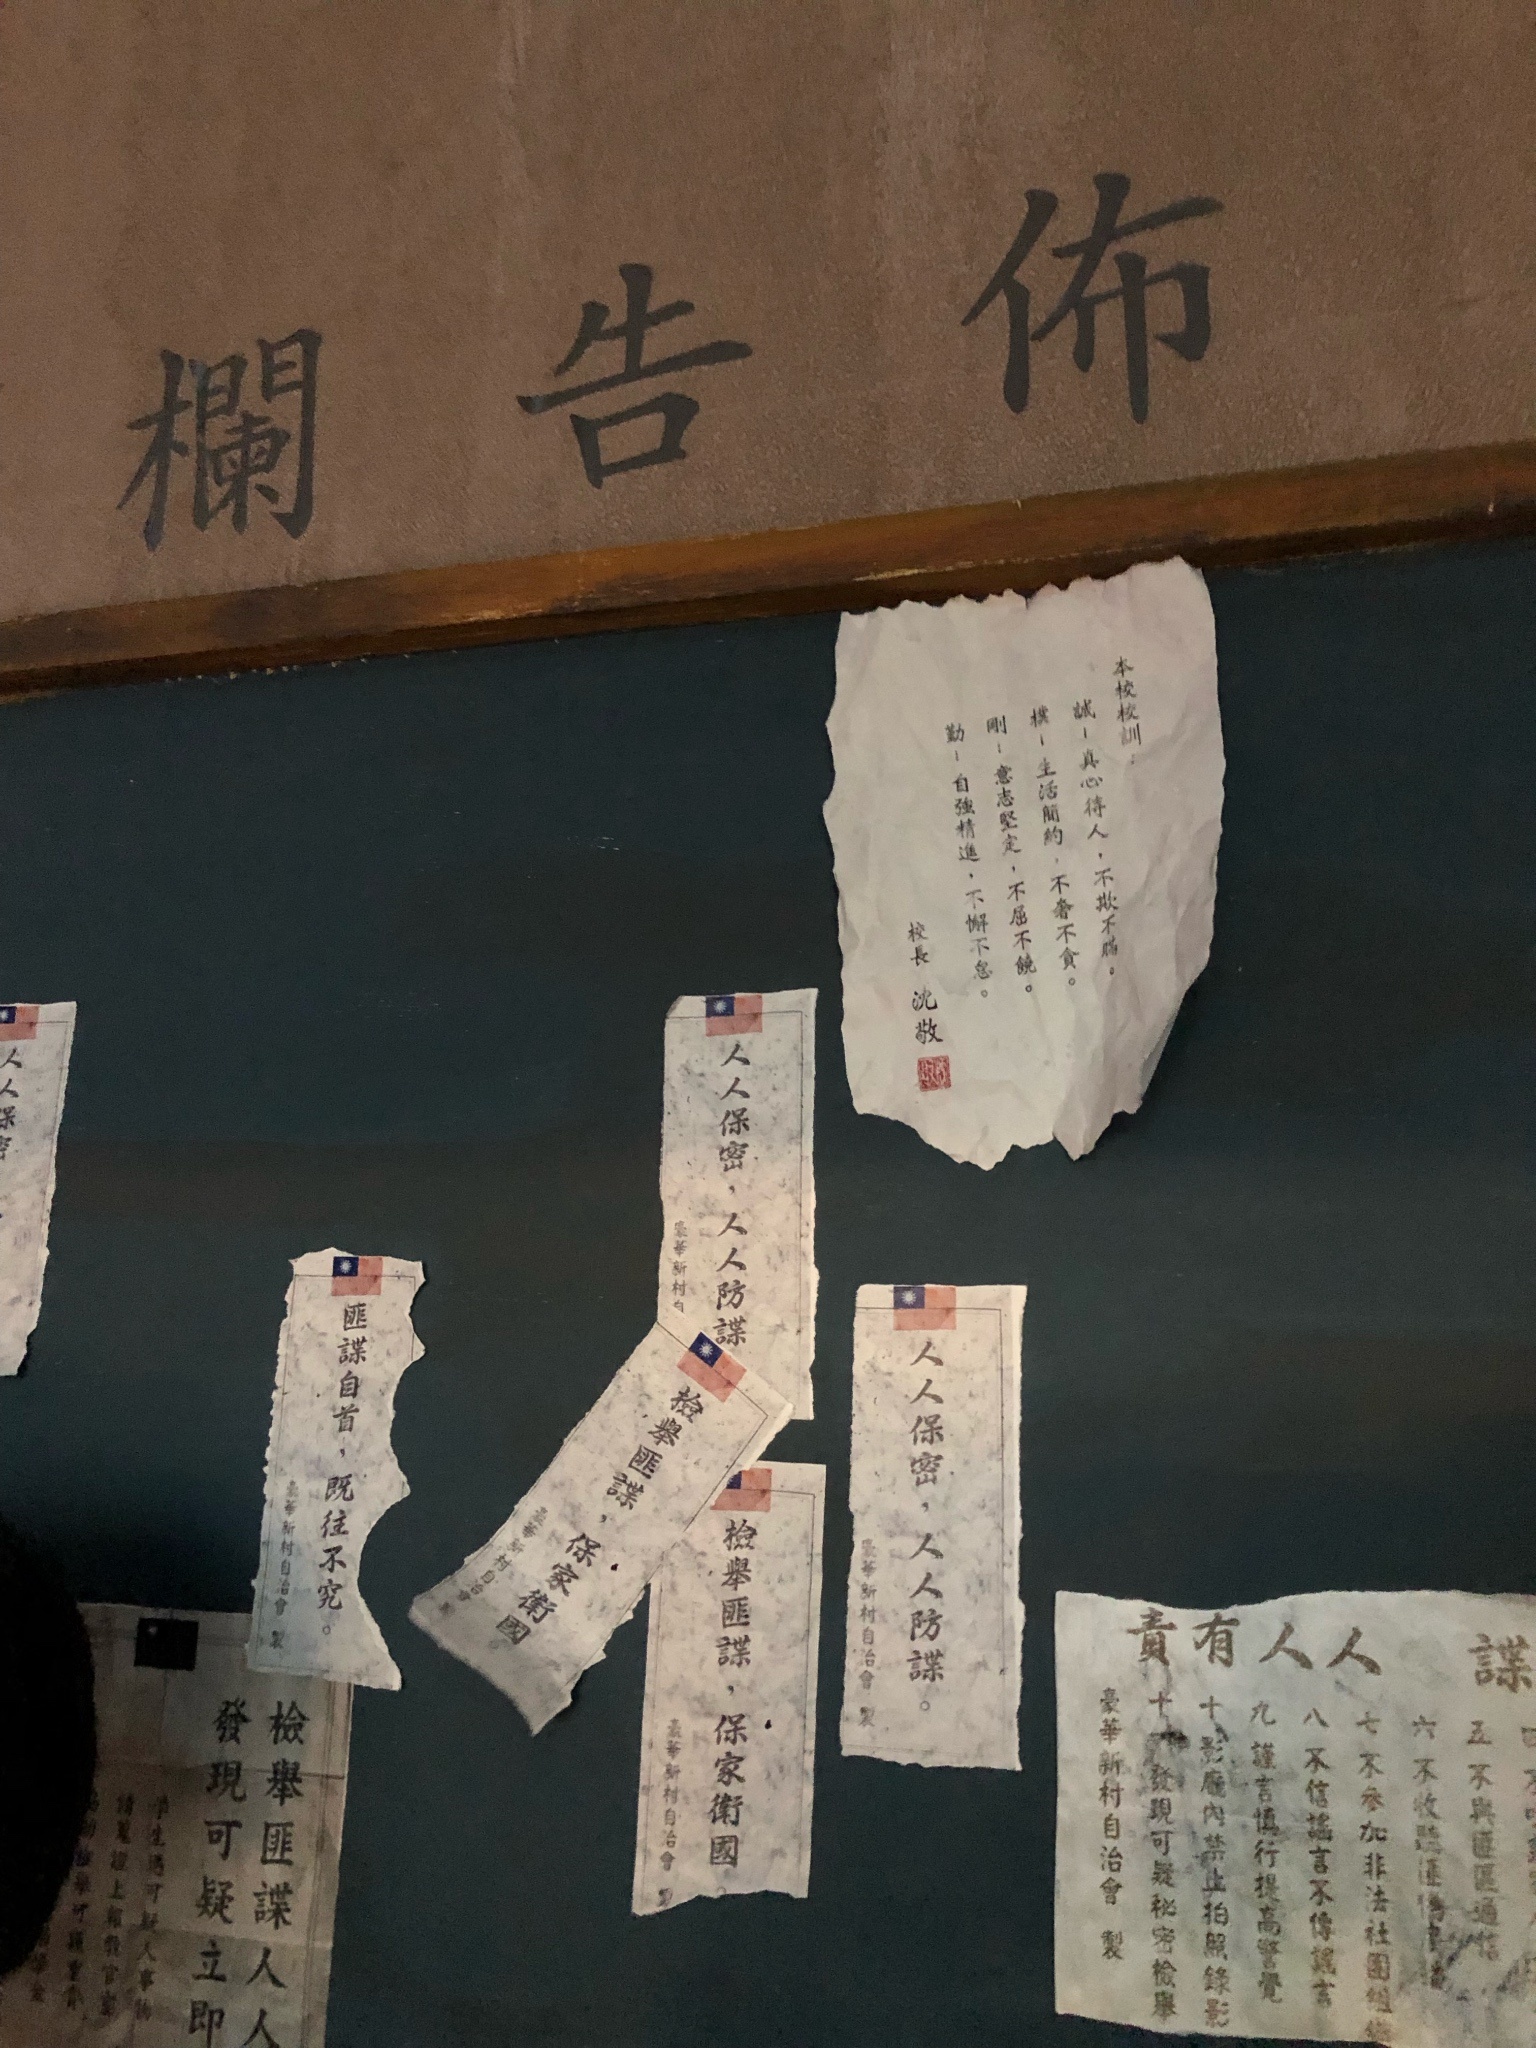 佈告欄
本校校訓：
誠－真心待人，不欺不瞞。
樸－生活簡約，不奢不貪。
剛－意志堅定，不屈不饒。
勤－自強精進，不懈不怠。
校長 沈敬
人人保密，人人防諜
豪華新村自
人人保密
匪諜自首，既往不究。
豪華新村自治會 製
檢舉匪諜，保家衛國
豪華新村自治會
檢舉匪諜，保家衛國。
豪華新村自治會 製
人人保密，人人防諜。
豪華新村自治會 製
諜 人人有責
五 不與匪區通信
六 不收聽匪偽
七 不參加非法社團組織
八 不信謠言不傳謠言
九 謹言慎行提高警覺
十 影廳內禁止拍照錄影
十一 發現可疑秘密檢舉
豪華新村自治會 製
檢舉匪諜人人
發現可疑立即
學生遇可疑人事物